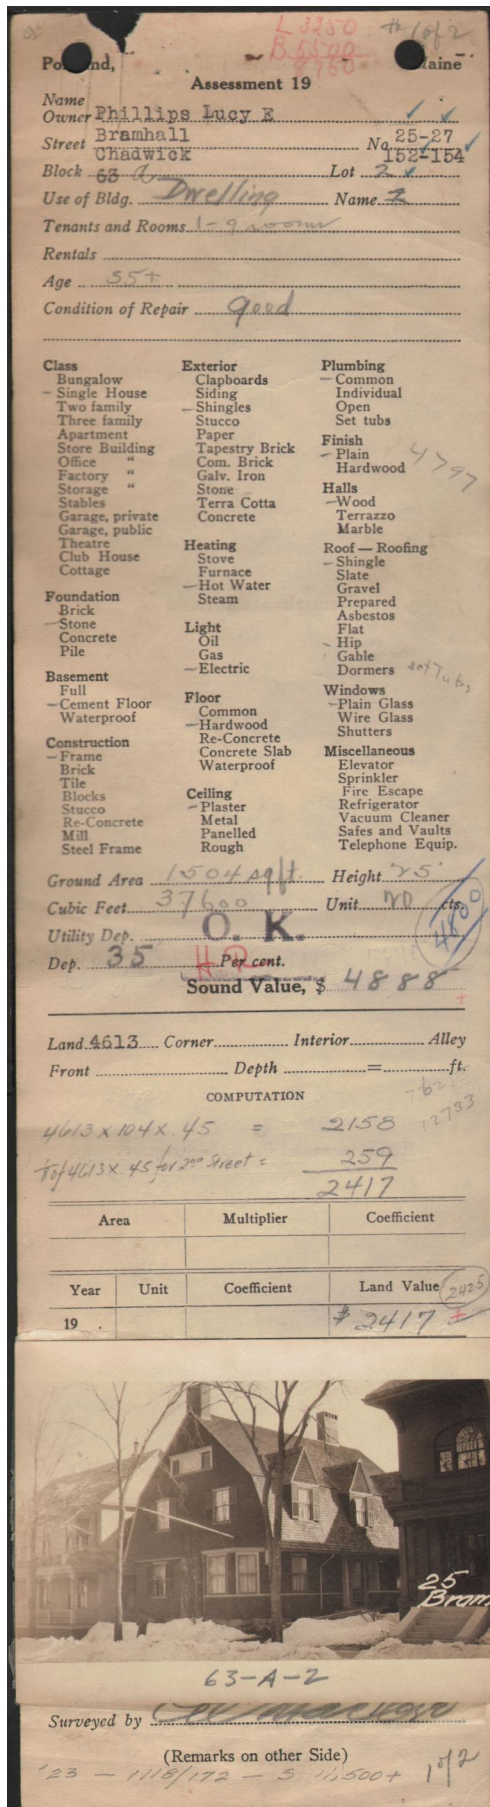 L 3250 # 1 of 2
B 5500
8750
Portland, Maine
Assessment 19
Name
Owner Phillips Lucy E
Street Bramhall No. 25-27
Chadwick 152-154
Block 63 a Lot 2
Use of Bldg. Dwelling Name 2
Tenants and Rooms 1-9 rooms
Rentals
Age 35+
Condition of Repair good
Class
Bungalow
- Single House
Two family
Three family
Apartment
Store Building
Office "
Factory "
Storage "
Stables
Garage, private
Garage, public
Theatre
Club House
Cottage
Foundation
Brick
- Stone
Concrete
Pile
Basement
Full
- Cement Floor
Waterproof
Construction
- Frame
Brick
Tile
Blocks
Stucco
Re-Concrete
Mill
Steel Frame
Exterior
Clapboards
Siding
- Shingles
Stucco
Paper
Tapestry Brick
Com. Brick
Galv. Iron
Stone
Terra Cotta
Concrete
Heating
Stove
Furnace
- Hot Water
Steam
Light
Oil
Gas
- Electric
Floor
Common
- Hardwood
Re-Concrete
Concrete Slab
Waterproof
Ceiling
- Plaster
Metal
Panelled
Rough
Plumbing
- Common
Individual
Open
Set tubs
Finish
- Plain
Hardwood 4797
Halls
- Wood
Terrazzo
Marble
Roof — Roofing
- Shingle
Slate
Gravel
Prepared
Asbestos
Flat
- Hip
Gable
Dormers set Tubs
Windows
- Plain Glass
Wire Glass
Shutters
Miscellaneous
Elevator
Sprinkler
Fire Escape
Refrigerator
Vacuum Cleaner
Safes and Vaults
Telephone Equip.
Ground Area 1504 sq ft. Height 25
Cubic Feet 37600 Unit 20 cts.
4800
Utility Dep. O. K.
Dep. 35 Per cent.
Sound Value, $ 4888
Land 4613 Corner Interior Alley
Front Depth = ft.
COMPUTATION
12733
4613 x 104 x .45 = 2158
4613 x .45 for 2nd Street = 259
2417
Area Multiplier Coefficient
Year Unit Coefficient Land Value 2425
19 . $ 2417
25
Bram
63-A-2
Surveyed by
(Remarks on other Side)
'23 - 1118/172 - $ 11,500+ 1 of 2